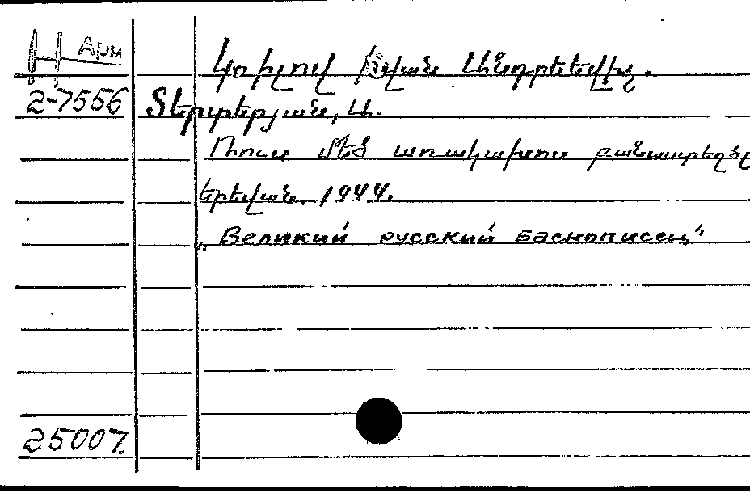 Арм
Կռիլով Իվան Անդրեևիչ.
2-7556
Տերտերյան, Ա.
Ռուս մեծ առակախոս բանաստեղծը
Երևան. 1944.
„Великий русский баснописец"
25007.